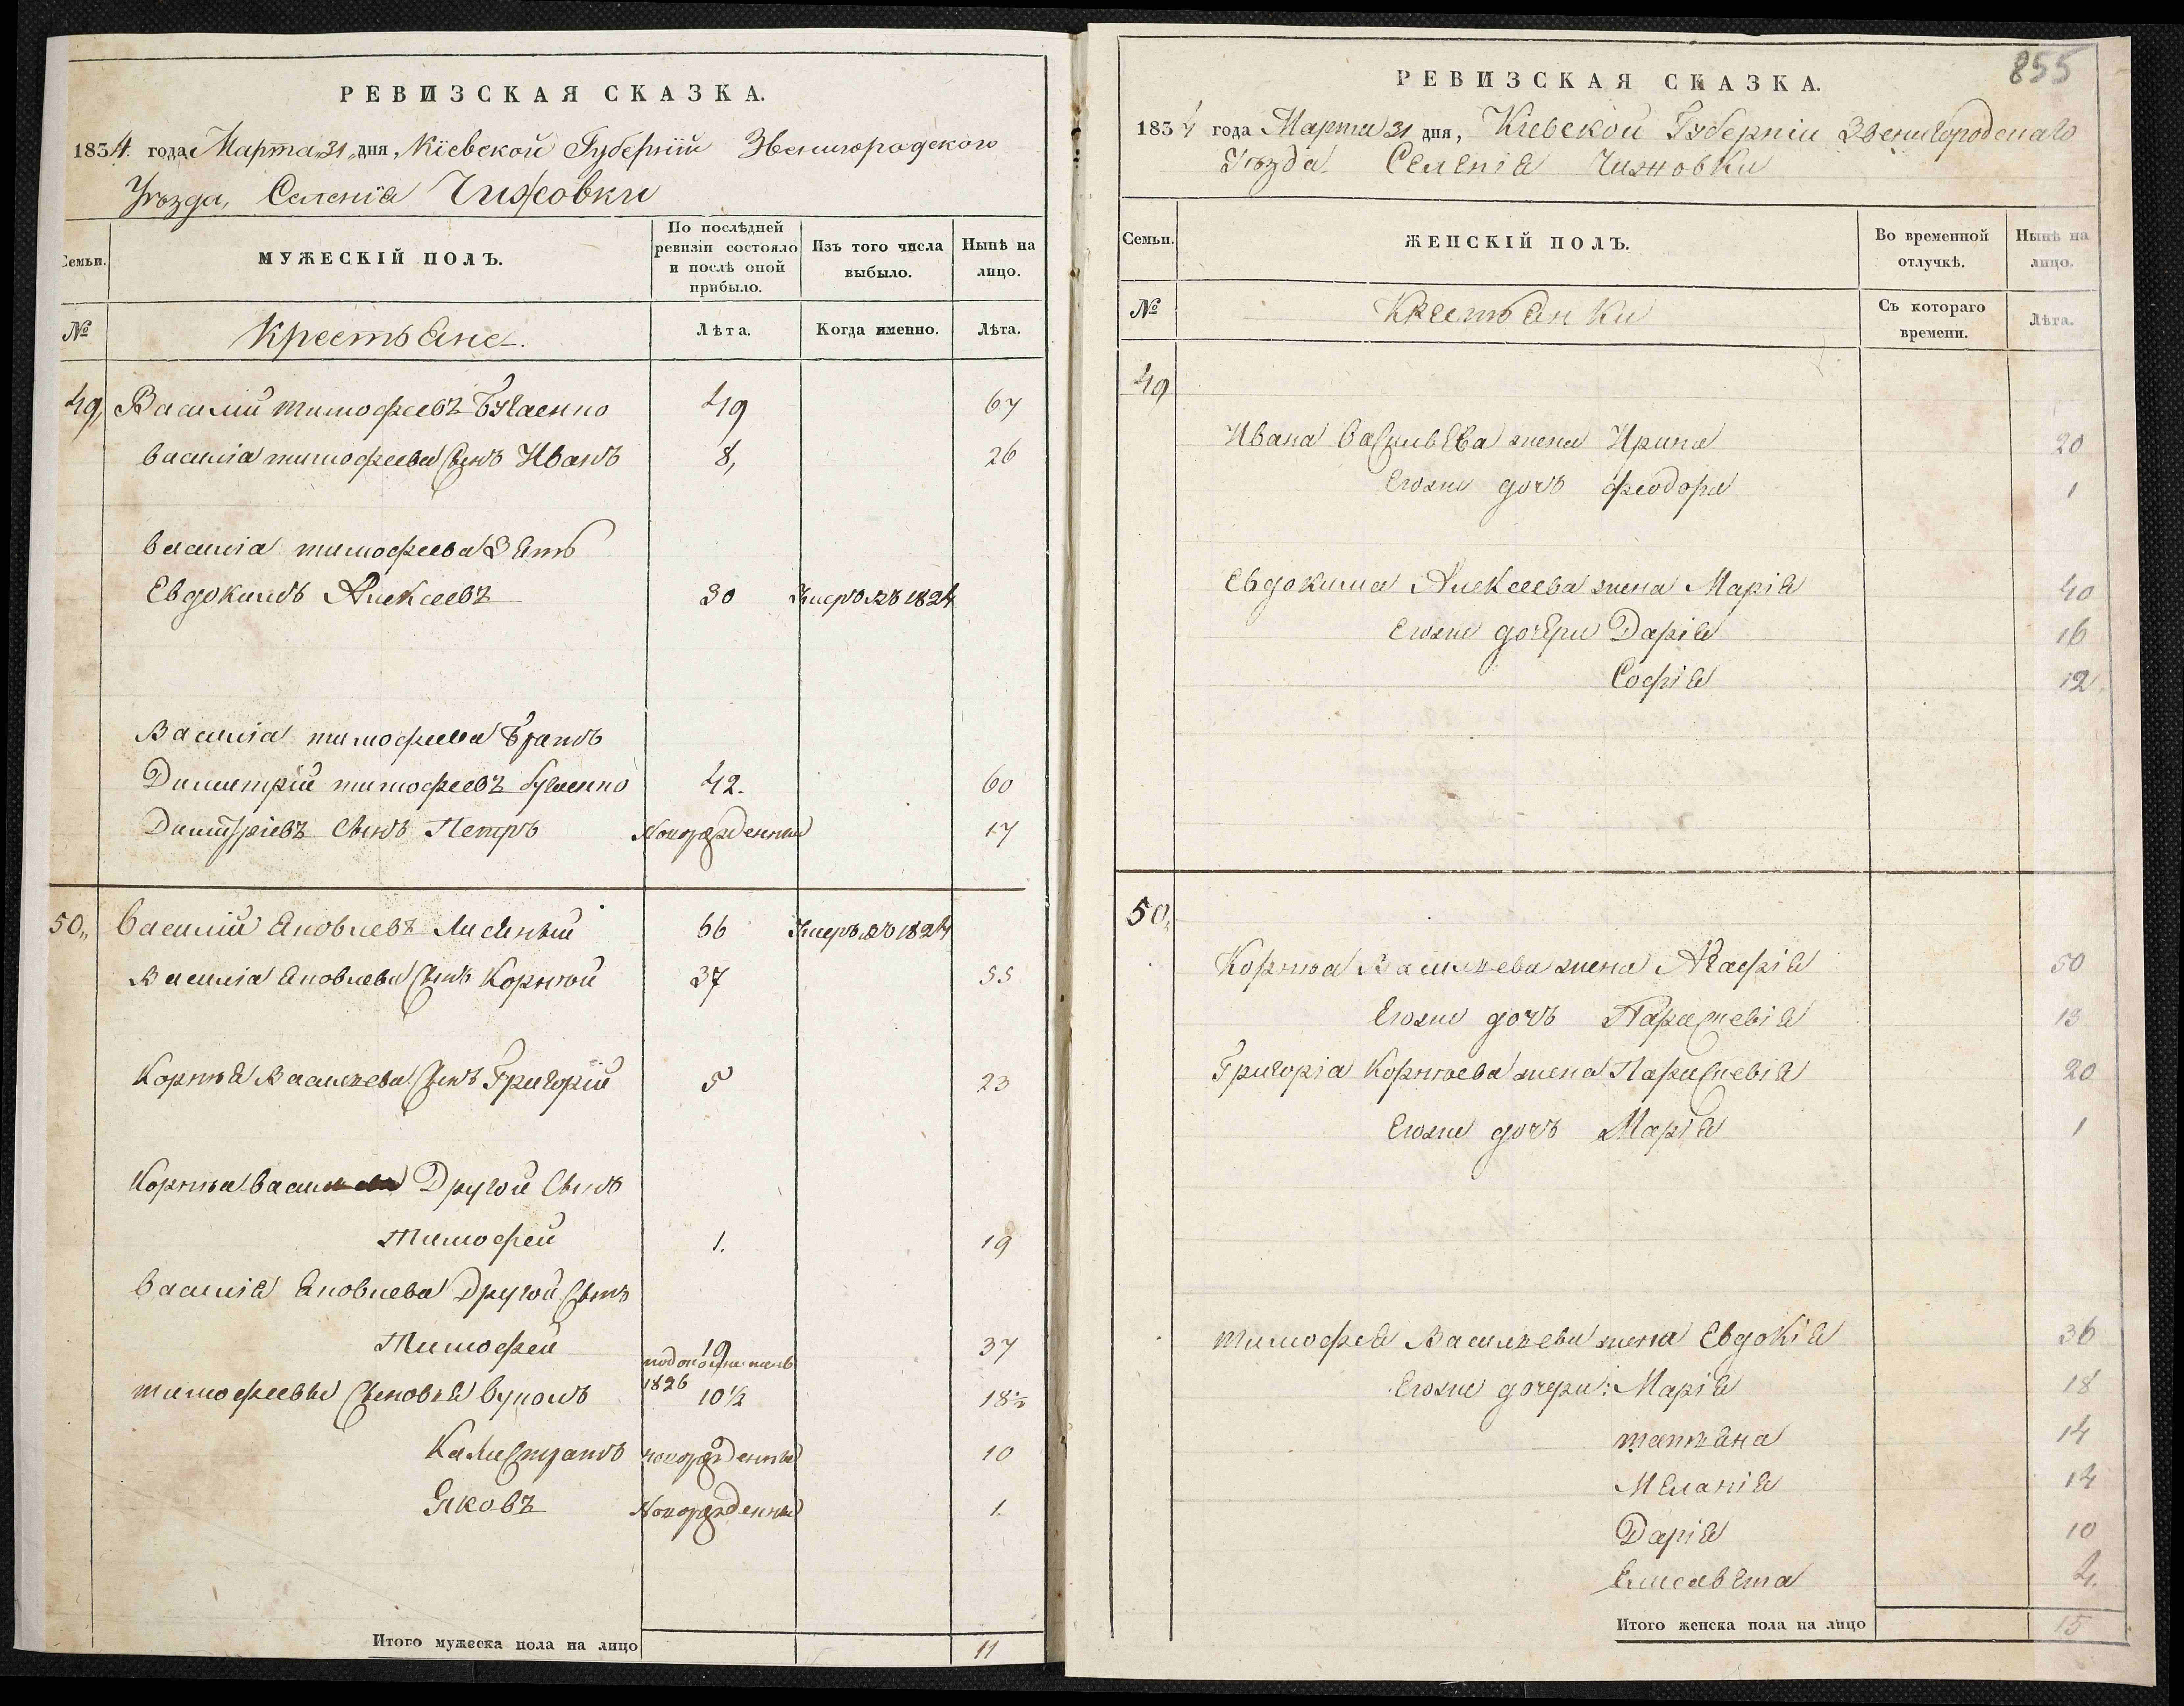 РЕВИЗСКАЯ СКАЗКА.
1834. года Марта 31 дня, Кіевской Губерніи Звенигородского
Уѣзда, Селенія Чижовки
Семьи.
МУЖЕСКІЙ ПОЛЪ.
По послѣдней ревизіи состояло и послѣ оной прибыло.
Изъ того числа выбыло.
Нынѣ на лицо.
№
Крестьяне.
Лѣта.
Когда именно.
Лѣта.
49, Василій тимофеевъ 49 67
василія тимофеева сынъ Иванъ 8, 26
василія тимофеева Зять
Евдокимъ Алексеевъ 30 Умеръ въ 1824
Василія тимофеева Братъ
Димитрій тимофеевъ 42. 60
Димитріевъ сынъ Петръ Новорожденный 17
50,, Василій Яковлевъ 66 Умеръ въ 1824
Василія Яковлева сынъ Корнѣй 37 55
Корнѣя Васильева сынъ Григорій 5 23
Корнѣя Васильева Другой сынъ
Тимофей 1. 19
Василія Яковлева Другой сынъ
Тимофей 19 37
1826
тимофеевы сыновья Вуколъ 10½ 18½
Калистратъ новорожденный 10
Яковъ Новорожденный 1.
Итого мужеска пола на лицо 11
855
РЕВИЗСКАЯ СКАЗКА.
1834 года Марта 31 дня, Кіевской Губерніи Звенигородскаго
Уѣзда. Селенія Чижовки
Семьи.
ЖЕНСКІЙ ПОЛЪ.
Во временной отлучкѣ.
Нынѣ на лицо.
№
Крестьянки
Съ котораго времени.
Лѣта.
49
Ивана Васильева жена Ирина 20
Егоже дочь феодора 1
Евдокима Алексеева жена Марія 40
Егоже дочери Дарія 16
Софія 12.
50,,
Корнѣя Васильева жена Агафія 50
Егоже дочь Параскевія 13
Григорія Корнѣева жена Параскевія 20
Егоже дочь Марія 1
тимофея Васильева жена Евдокія 36
Егоже дочери: Марія 18
татьяна 14
Меланія 12
Дарія 10
Елисавета 2.
Итого женска пола на лицо 15